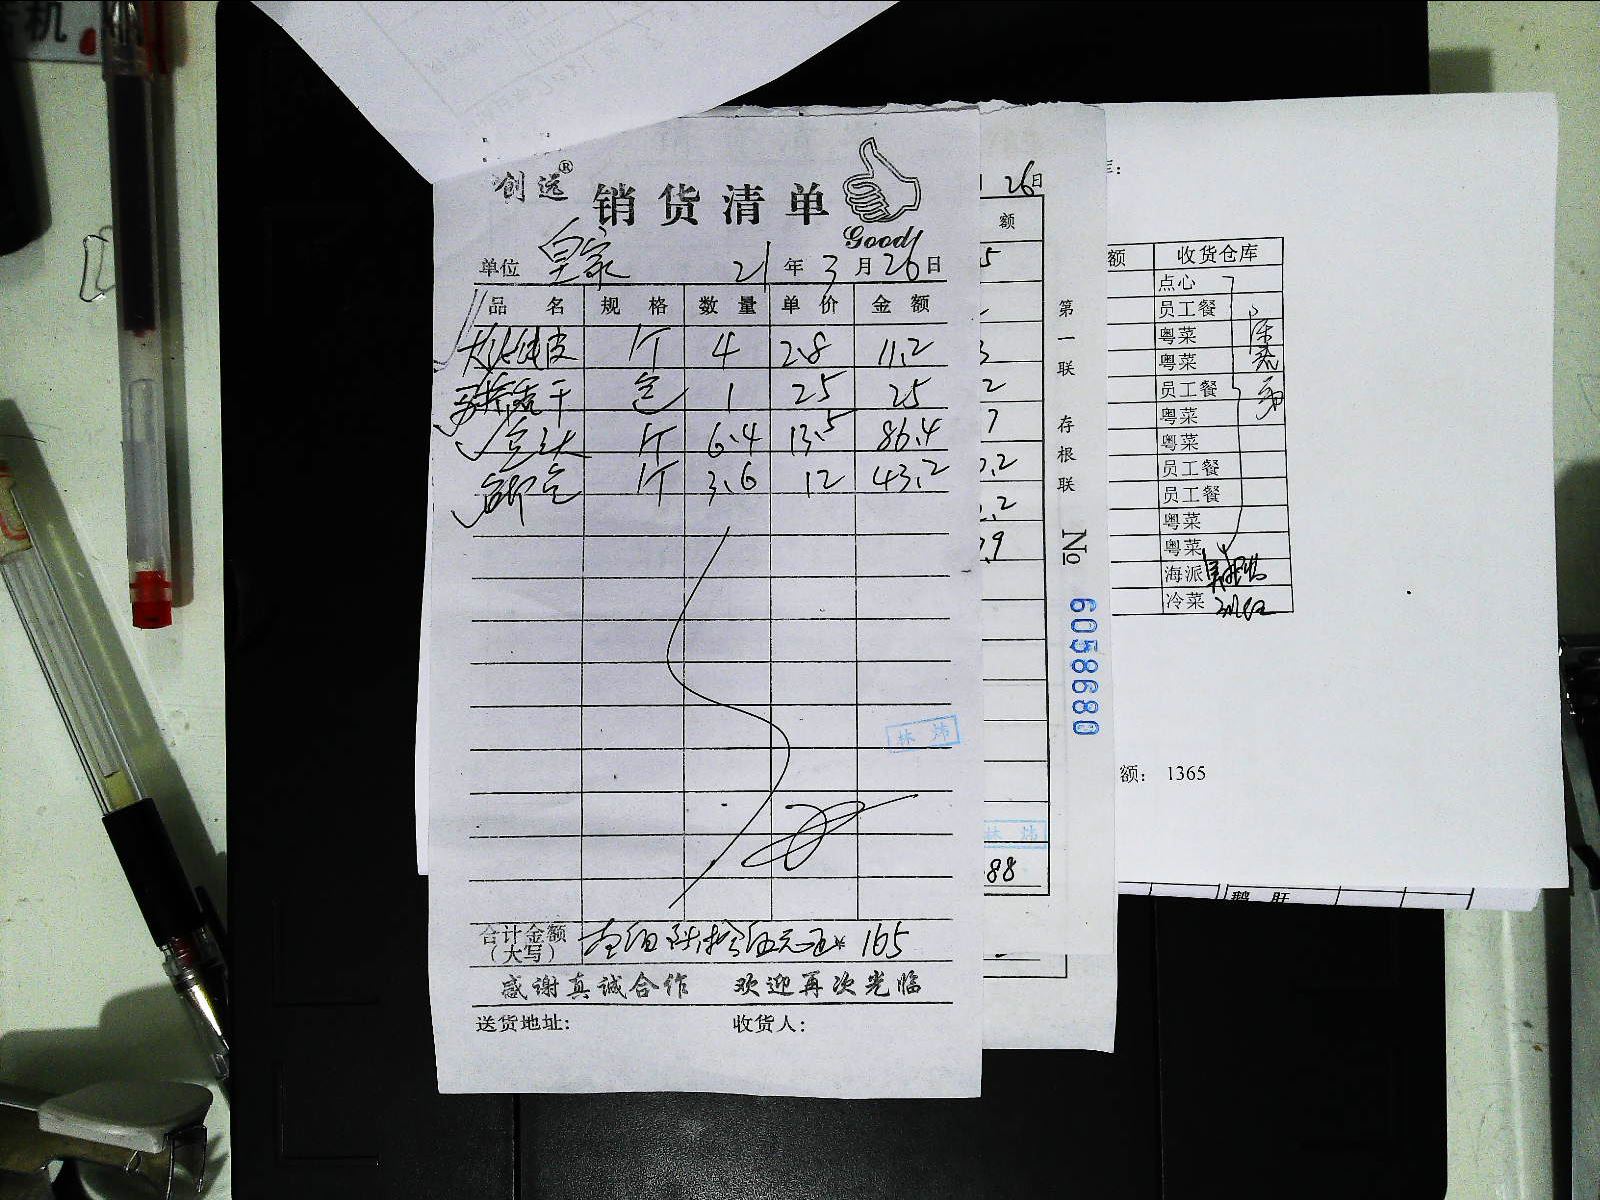 机
创远®
销货清单
Good
单位 皇家 21年3月26日
品名 规格 数量 单价 金额
个 4 2.8 11.2
干 包 1 25 25
个 6.4 13.5 86.4
个 3.6 12 43.2
林 炜
合计金额（大写） 壹佰陆拾伍元正 ¥ 165
感谢真诚合作 欢迎再次光临
送货地址： 收货人：
26日
额
5
2
7
.2
.2
.9
林 炜
88
第一联 存根联 № 6058680
额 收货仓库
点心
员工餐
粤菜
粤菜
员工餐
粤菜
粤菜
员工餐
员工餐
粤菜
粤菜
海派
冷菜
额： 1365
鹅 肝